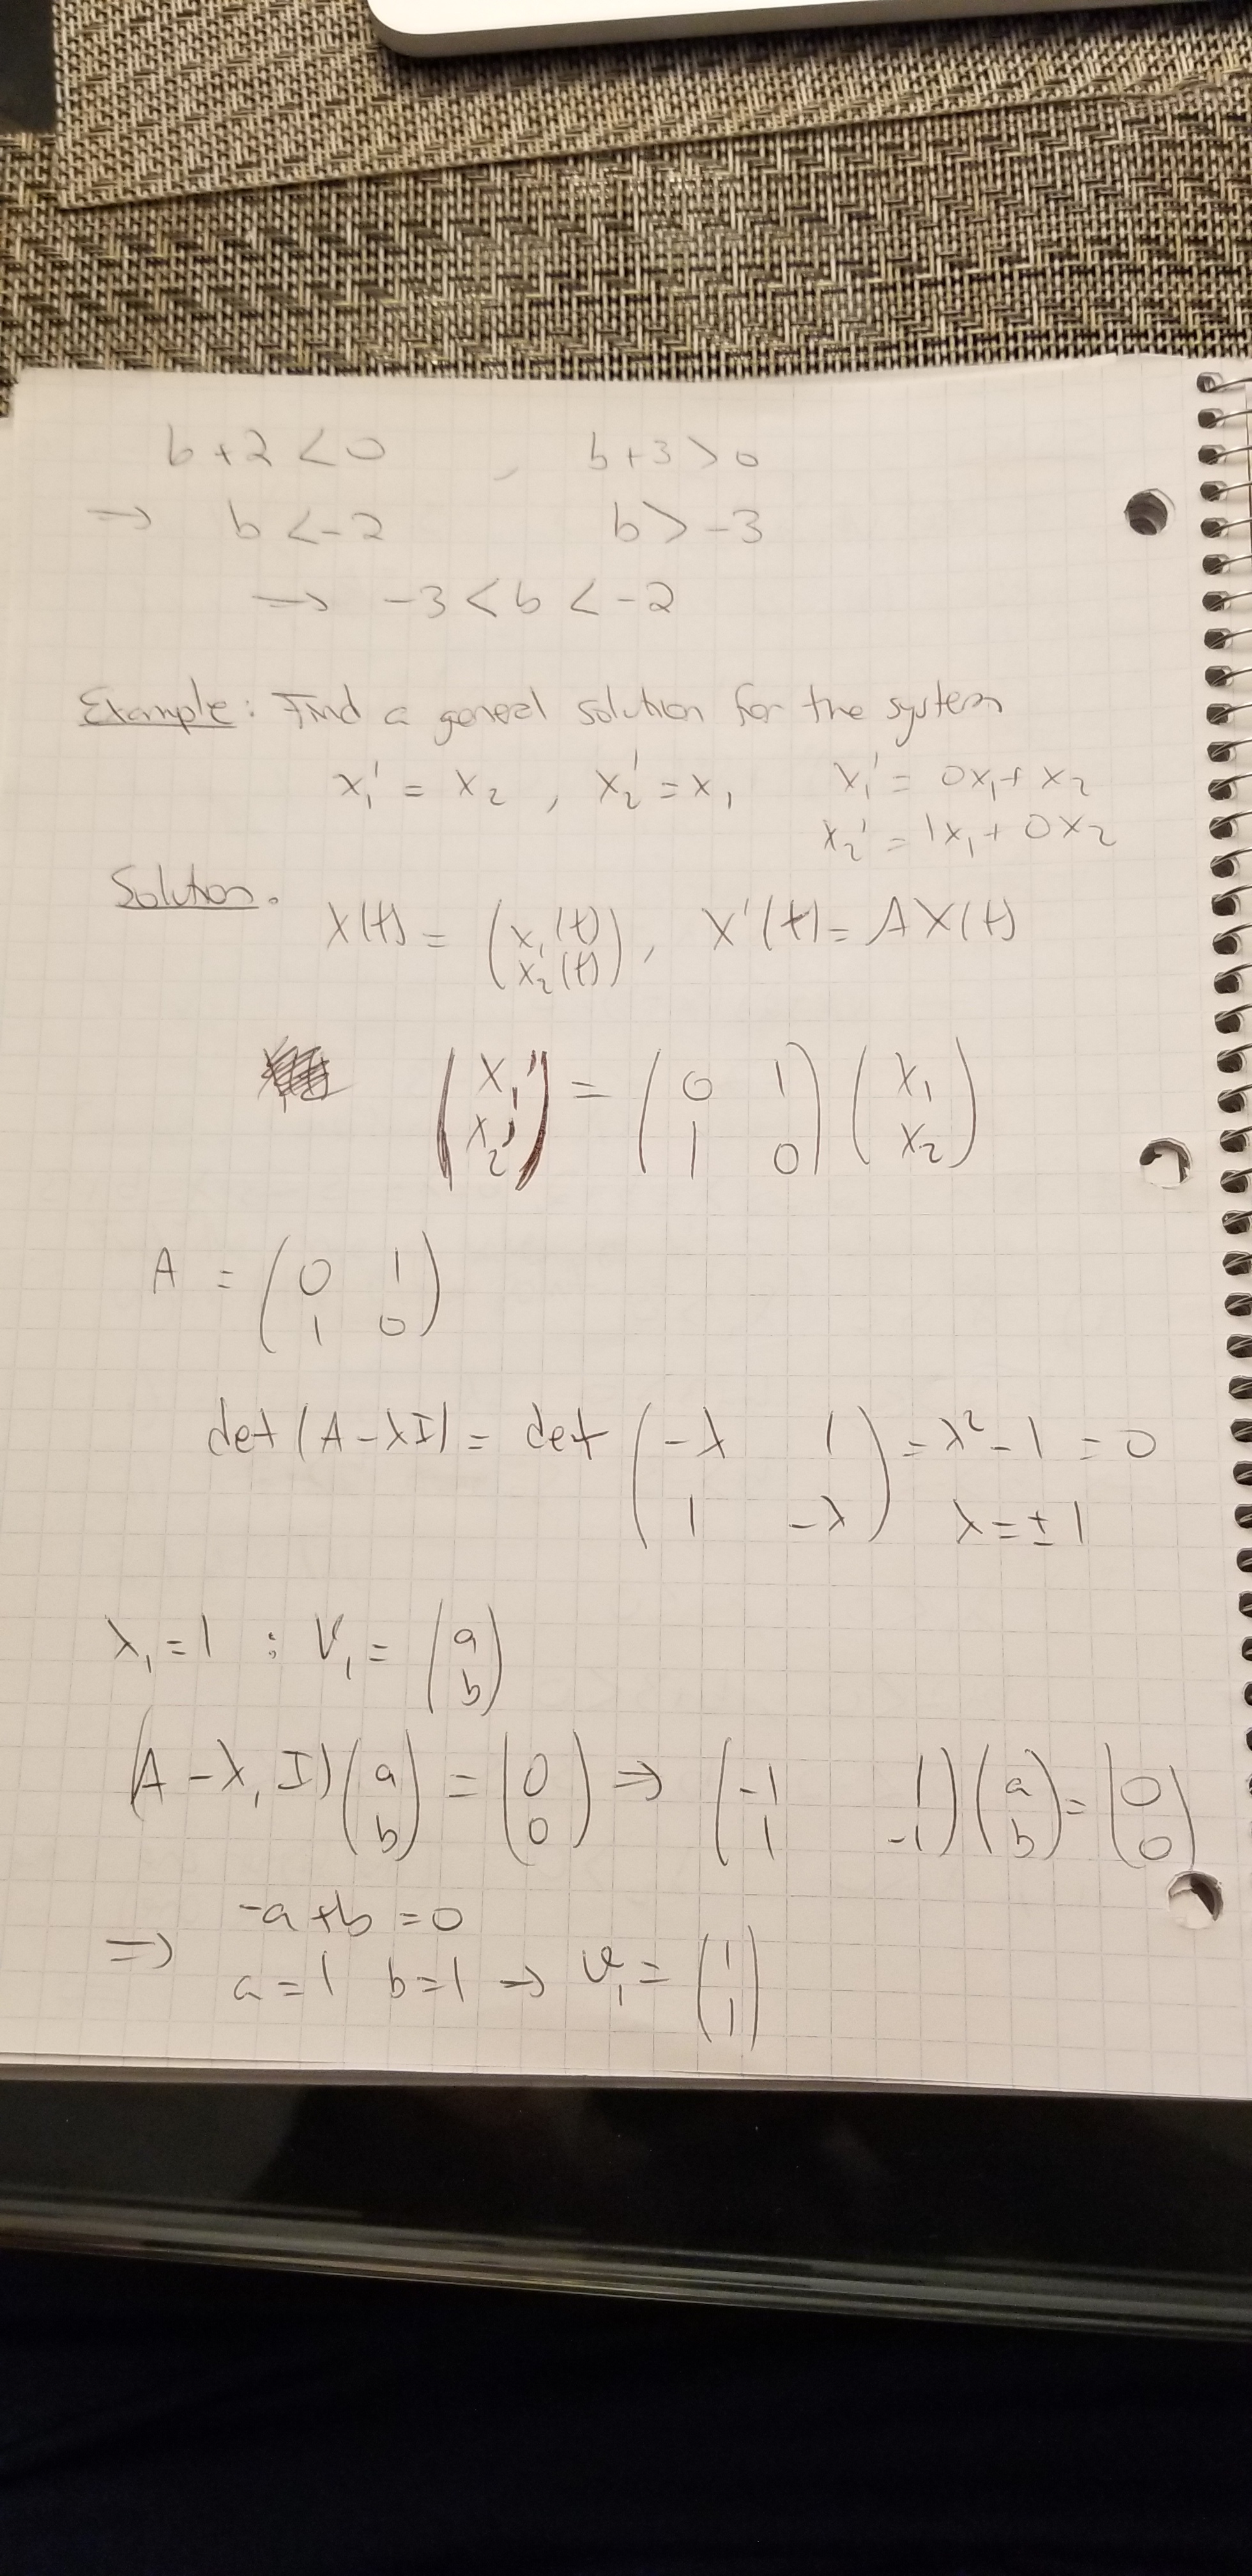 b+2<0 , b+3>0
⇒ b<-2 b>-3
⇒ -3<b<-2
Example: Find a general solution for the system
x₁' = x₂ , x₂' = x₁ x₁' = 0x₁+x₂
x₂' = 1x₁+0x₂
Solution.
X(t) = (x₁(t) x₂(t)), X'(t) = AX(t)
(x₁' x₂') = (0 1 1 0)(x₁ x₂)
A = (0 1 1 0)
det(A-λI) = det(-λ 1 1 -λ) = λ²-1 = 0
λ=±1
λ₁=1 : V₁ = (a b)
(A-λ₁I)(a b) = (0 0) ⇒ (-1 1 1 -1)(a b) = (0 0)
⇒ -a+b=0
a=1 b=1 → v₁ = (1 1)